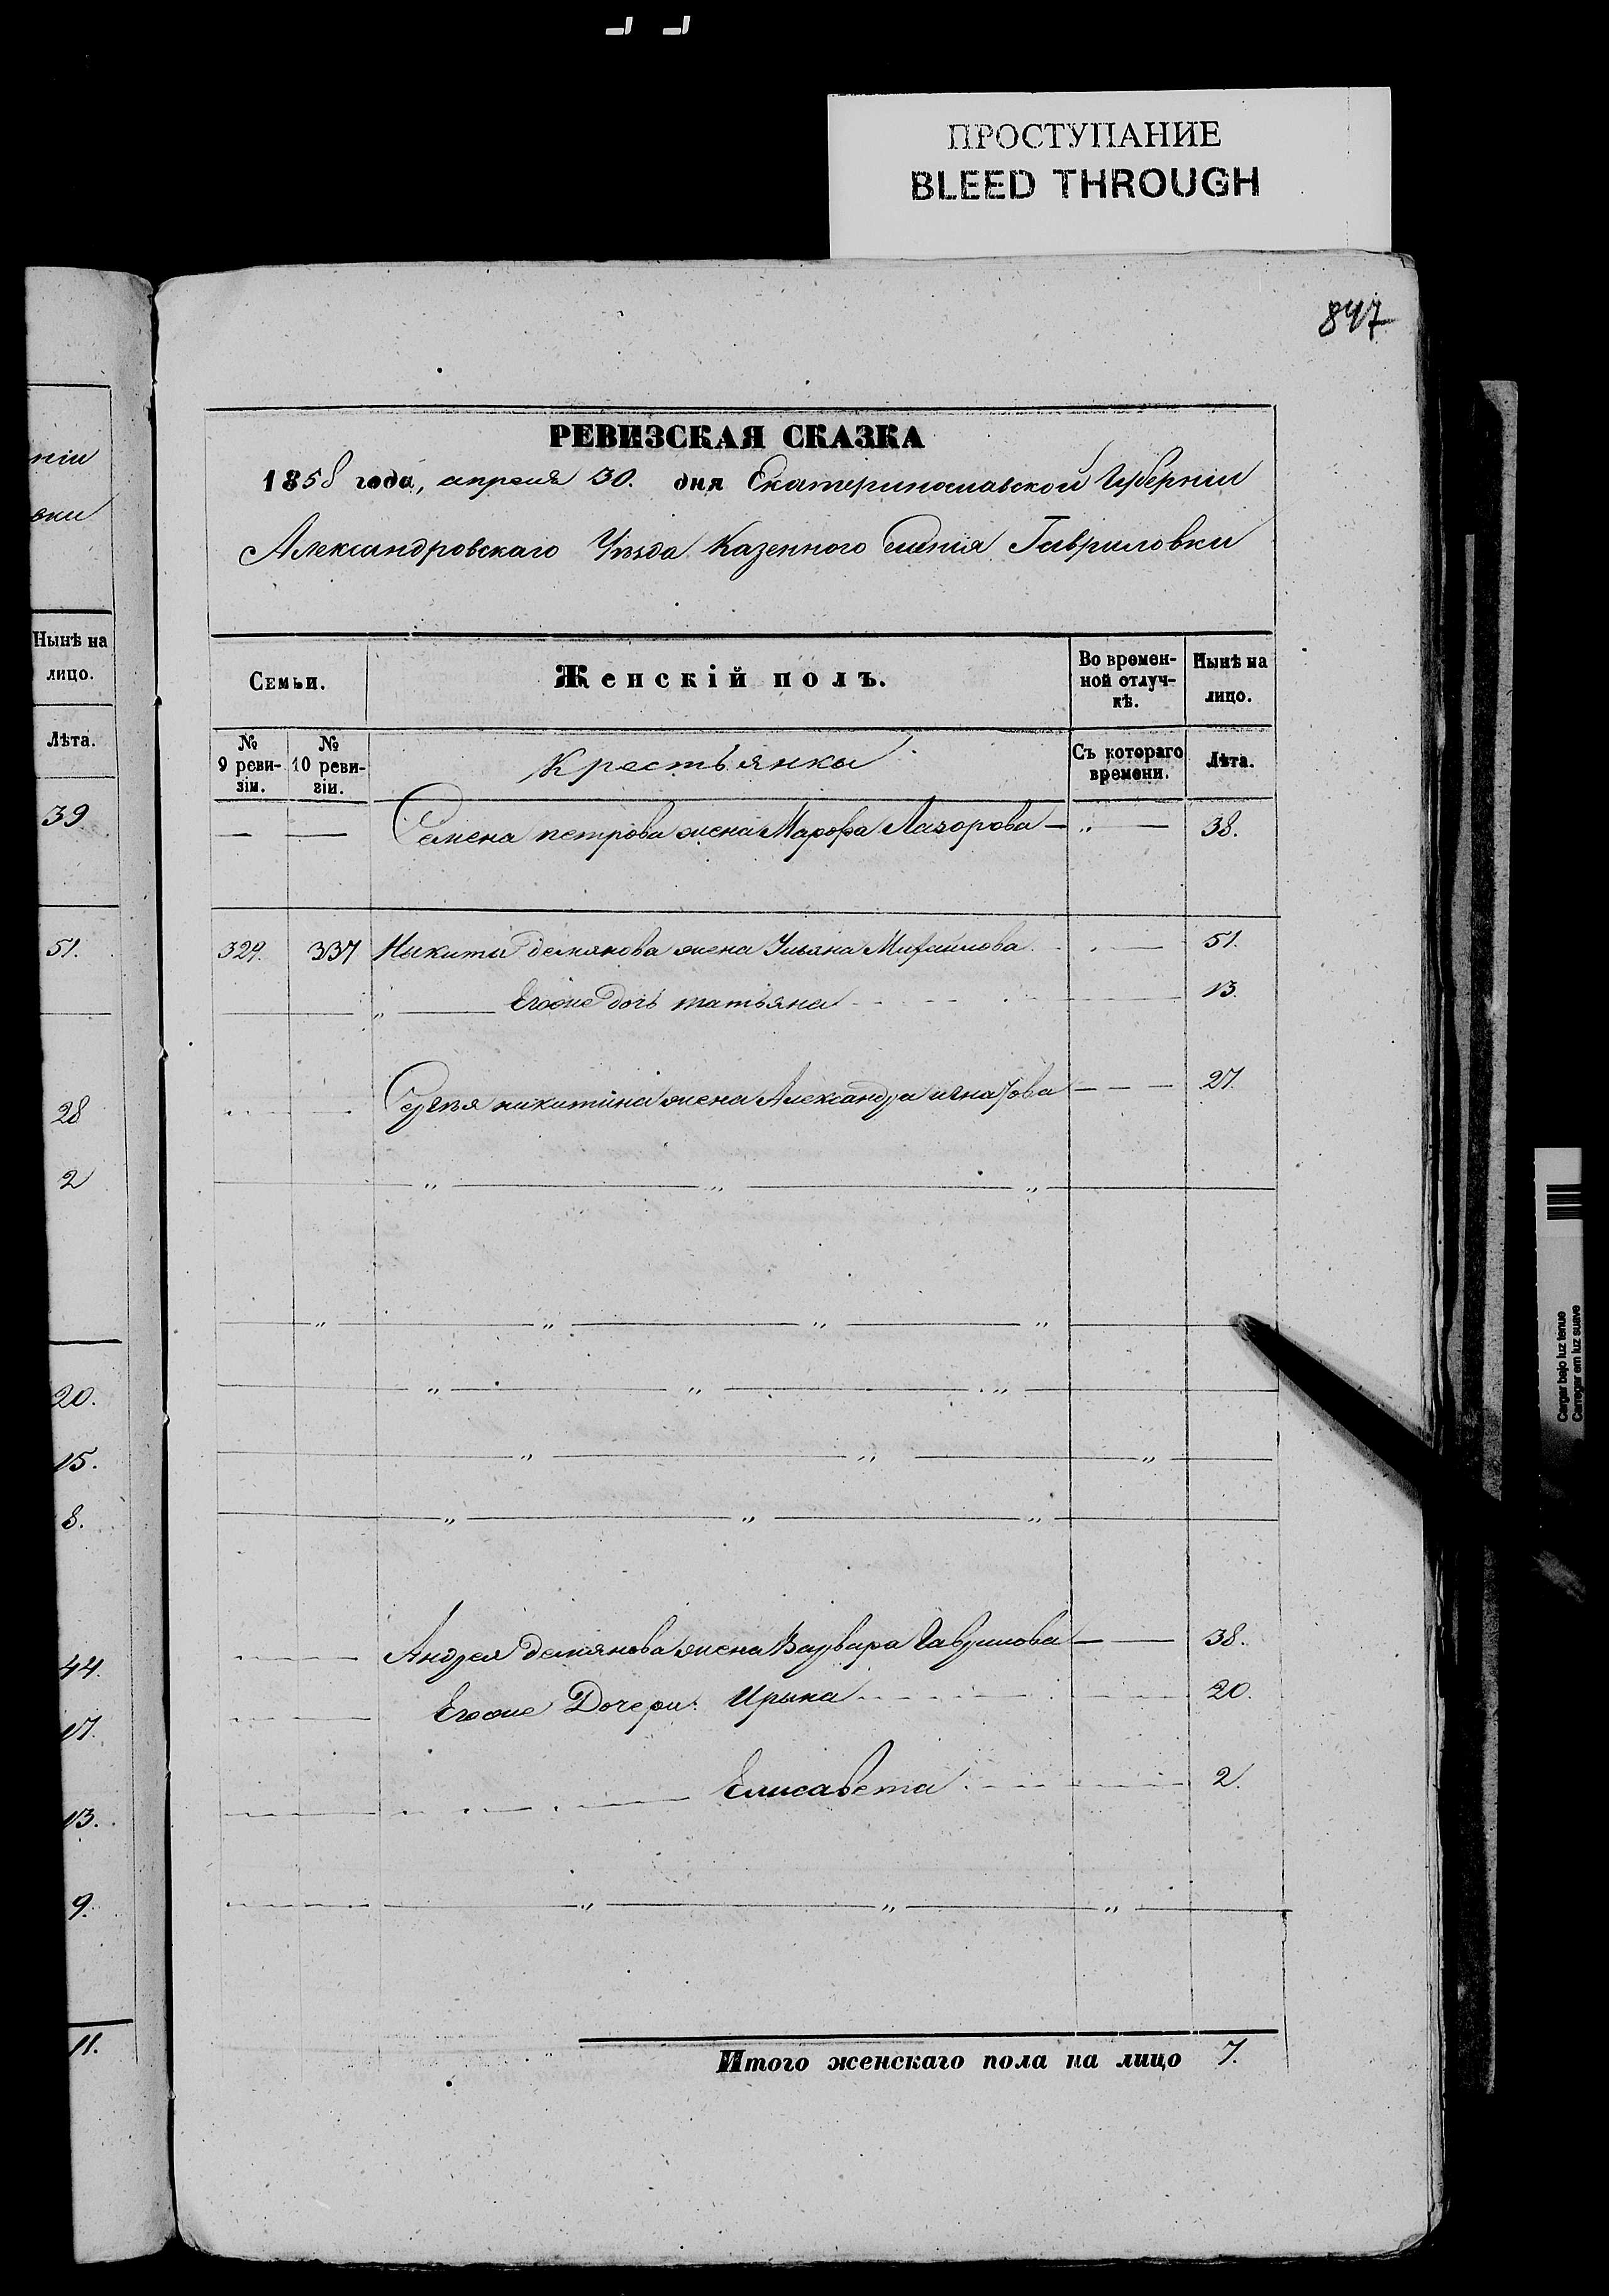 ПРОСТУПАНИЕ
BLEED THROUGH
847
ніи
вки
Нынѣ на
лицо.
Лѣта.
39
51.
28
2
20.
15.
8.
44.
17.
13.
9.
11.
РЕВИЗСКАЯ СКАЗКА
1858 года, апреля 30. дня Екатеринославской Губерніи
Александровскаго Уѣзда Казенного Селенія Гавриловки
Семьи.
Женскій полъ.
Во времен-
ной отлуч-
кѣ.
Нынѣ на
лицо.
№
9 реви-
зіи.
№
10 реви-
зіи.
Крестьянки
Съ котораго
времени.
Лѣта.
Семена петрова жена Марфа Лазорова — „ — 38.
329. 337 Никиты демянова жена Ульяна Михайлова 51.
„ Егоже дочь татьяна 13.
Сергѣя никитина жена Александра игнатова 27.
Андрея демянова жена Варвара Гаврилова 38.
Егоже Дочери: Ирына 20.
Елисавета 2.
Итого женскаго пола на лицо 7.
Cargar bajo luz tenue
Carregar em luz suave